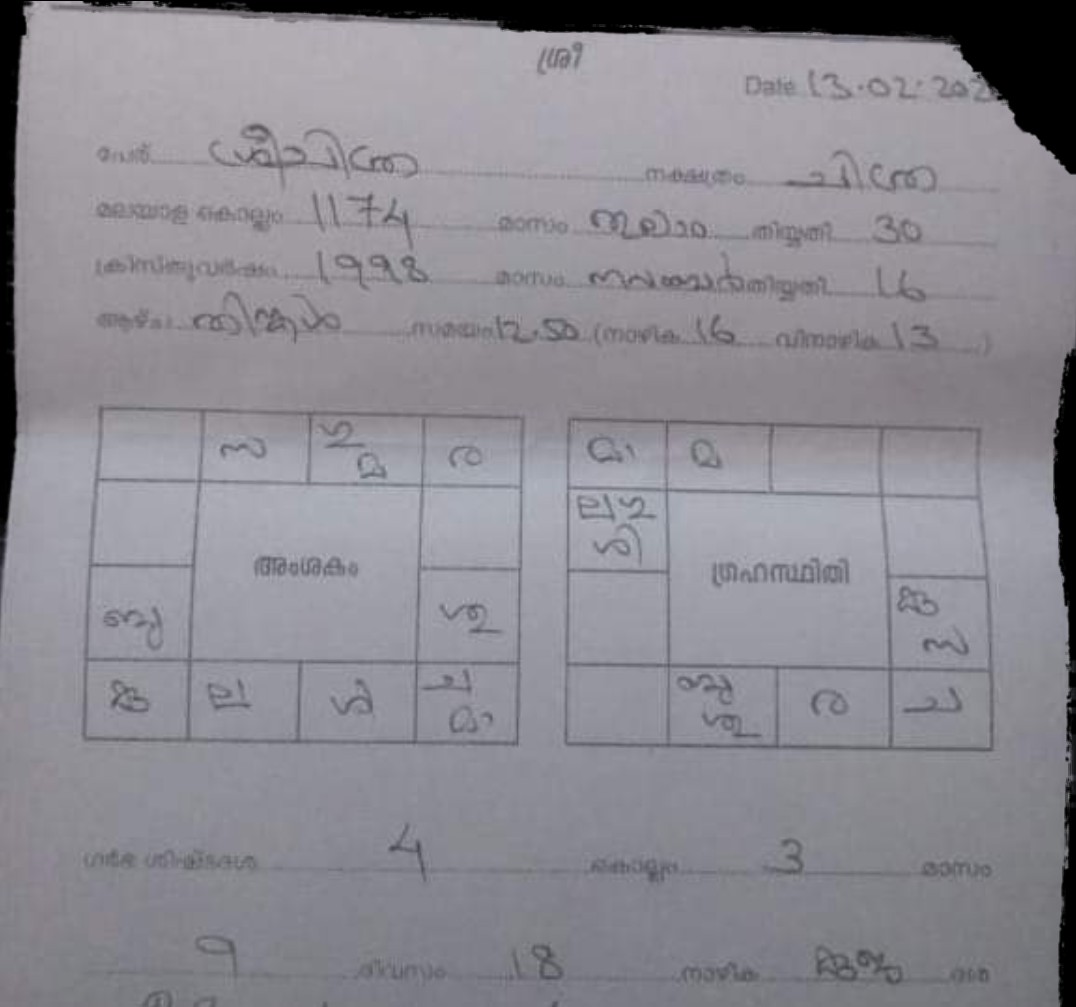 ശ്രീ
Date 13.02.202
പേര് ശ്രീചിത്ര നക്ഷത്രം ചിത്ര
മലയാള കൊല്ലം 1174 മാസം തുലാം തിയ്യതി 30
ക്രിസ്തുവർഷം 1998 മാസം നവംബർ തിയ്യതി 16
ആഴ്ച തിങ്കൾ സമയം 12.50 (നാഴിക 16 വിനാഴിക 13 )
സ ഗു മ ര
മാ മ
ല ഗു ശി
അംശകം
ഗ്രഹസ്ഥിതി
ബു ശു
കു സ
കു ല ശി ച മാ
ബു ശു ര ച
ഗർഭ ശിഷ്ടദശ 4 കൊല്ലം 3 മാസം
9 ദിവസം 18 നാഴിക കുജ ദശ